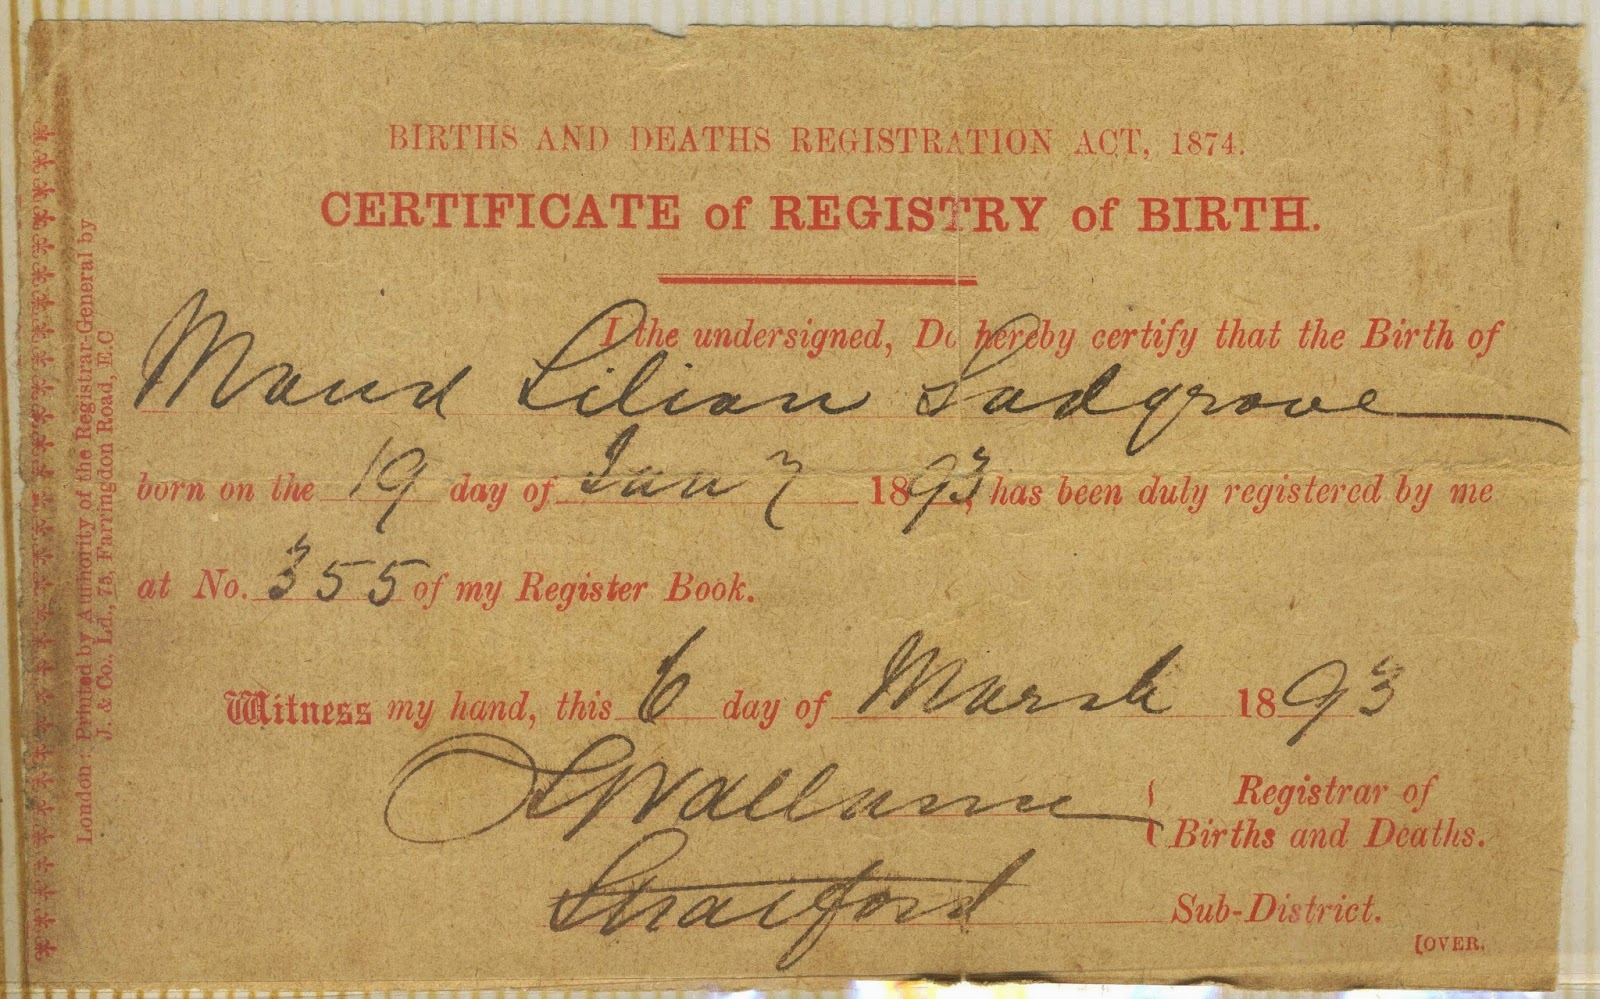 BIRTHS AND DEATHS REGISTRATION ACT, 1874.
CERTIFICATE of REGISTRY of BIRTH.
I the undersigned, Do hereby certify that the Birth of
Maud Lilian Sadgrove
born on the 19 day of Jany 1893, has been duly registered by me
at No. 355 of my Register Book.
Witness my hand, this 6 day of March 1893
Registrar of
Births and Deaths.
Stratford Sub-District.
[OVER.
London: Printed by Authority of the Registrar-General by
J. & Co., Ld., 75, Farringdon Road, E.C